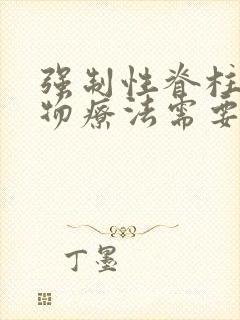 强制性脊柱
物疗法需要
丁墨